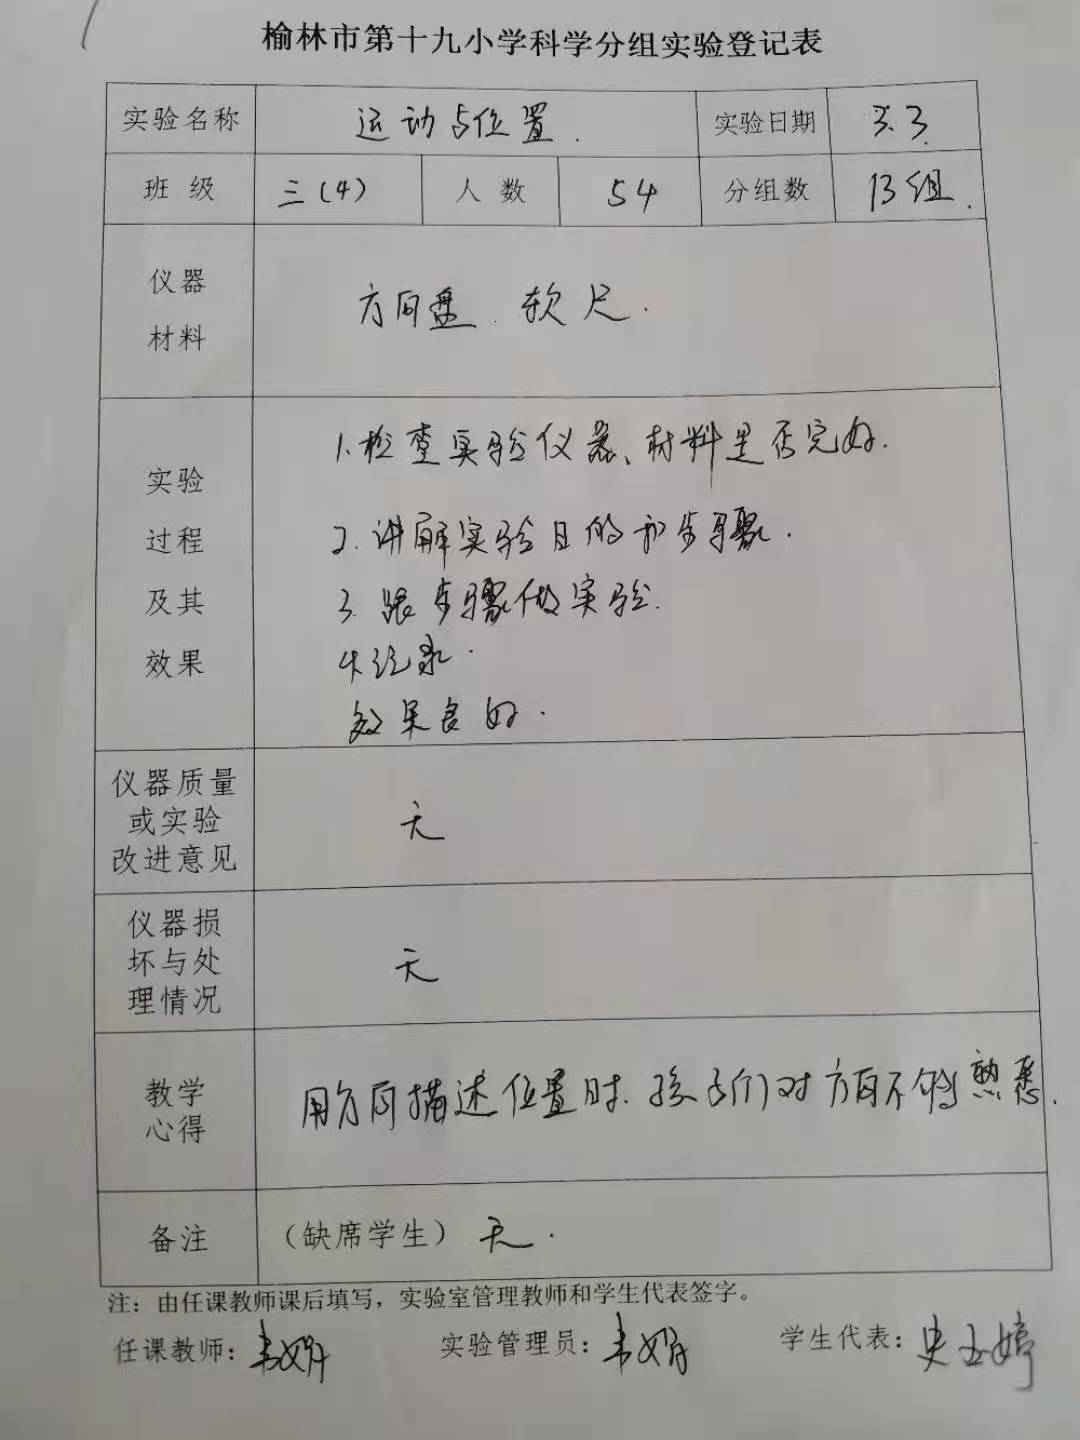 榆林市第十九小学科学分组实验登记表
实验名称 运动与位置. 实验日期 3.3
班 级 三(4) 人 数 54 分组数 13组.
仪器
材料
方向盘. 软尺.
实验
过程
及其
效果
1.检查实验仪器、材料是否完好.
2.讲解实验目的和步骤.
3.跟步骤做实验.
4.记录.
效果良好.
仪器质量
或实验
改进意见
无
仪器损
坏与处
理情况
无
教学
心得
用方向描述位置时.孩子们对方向不够熟悉.
备注 (缺席学生) 无.
注：由任课教师课后填写，实验室管理教师和学生代表签字。
任课教师: 韦娟 实验管理员: 韦娟 学生代表: 史玉婷